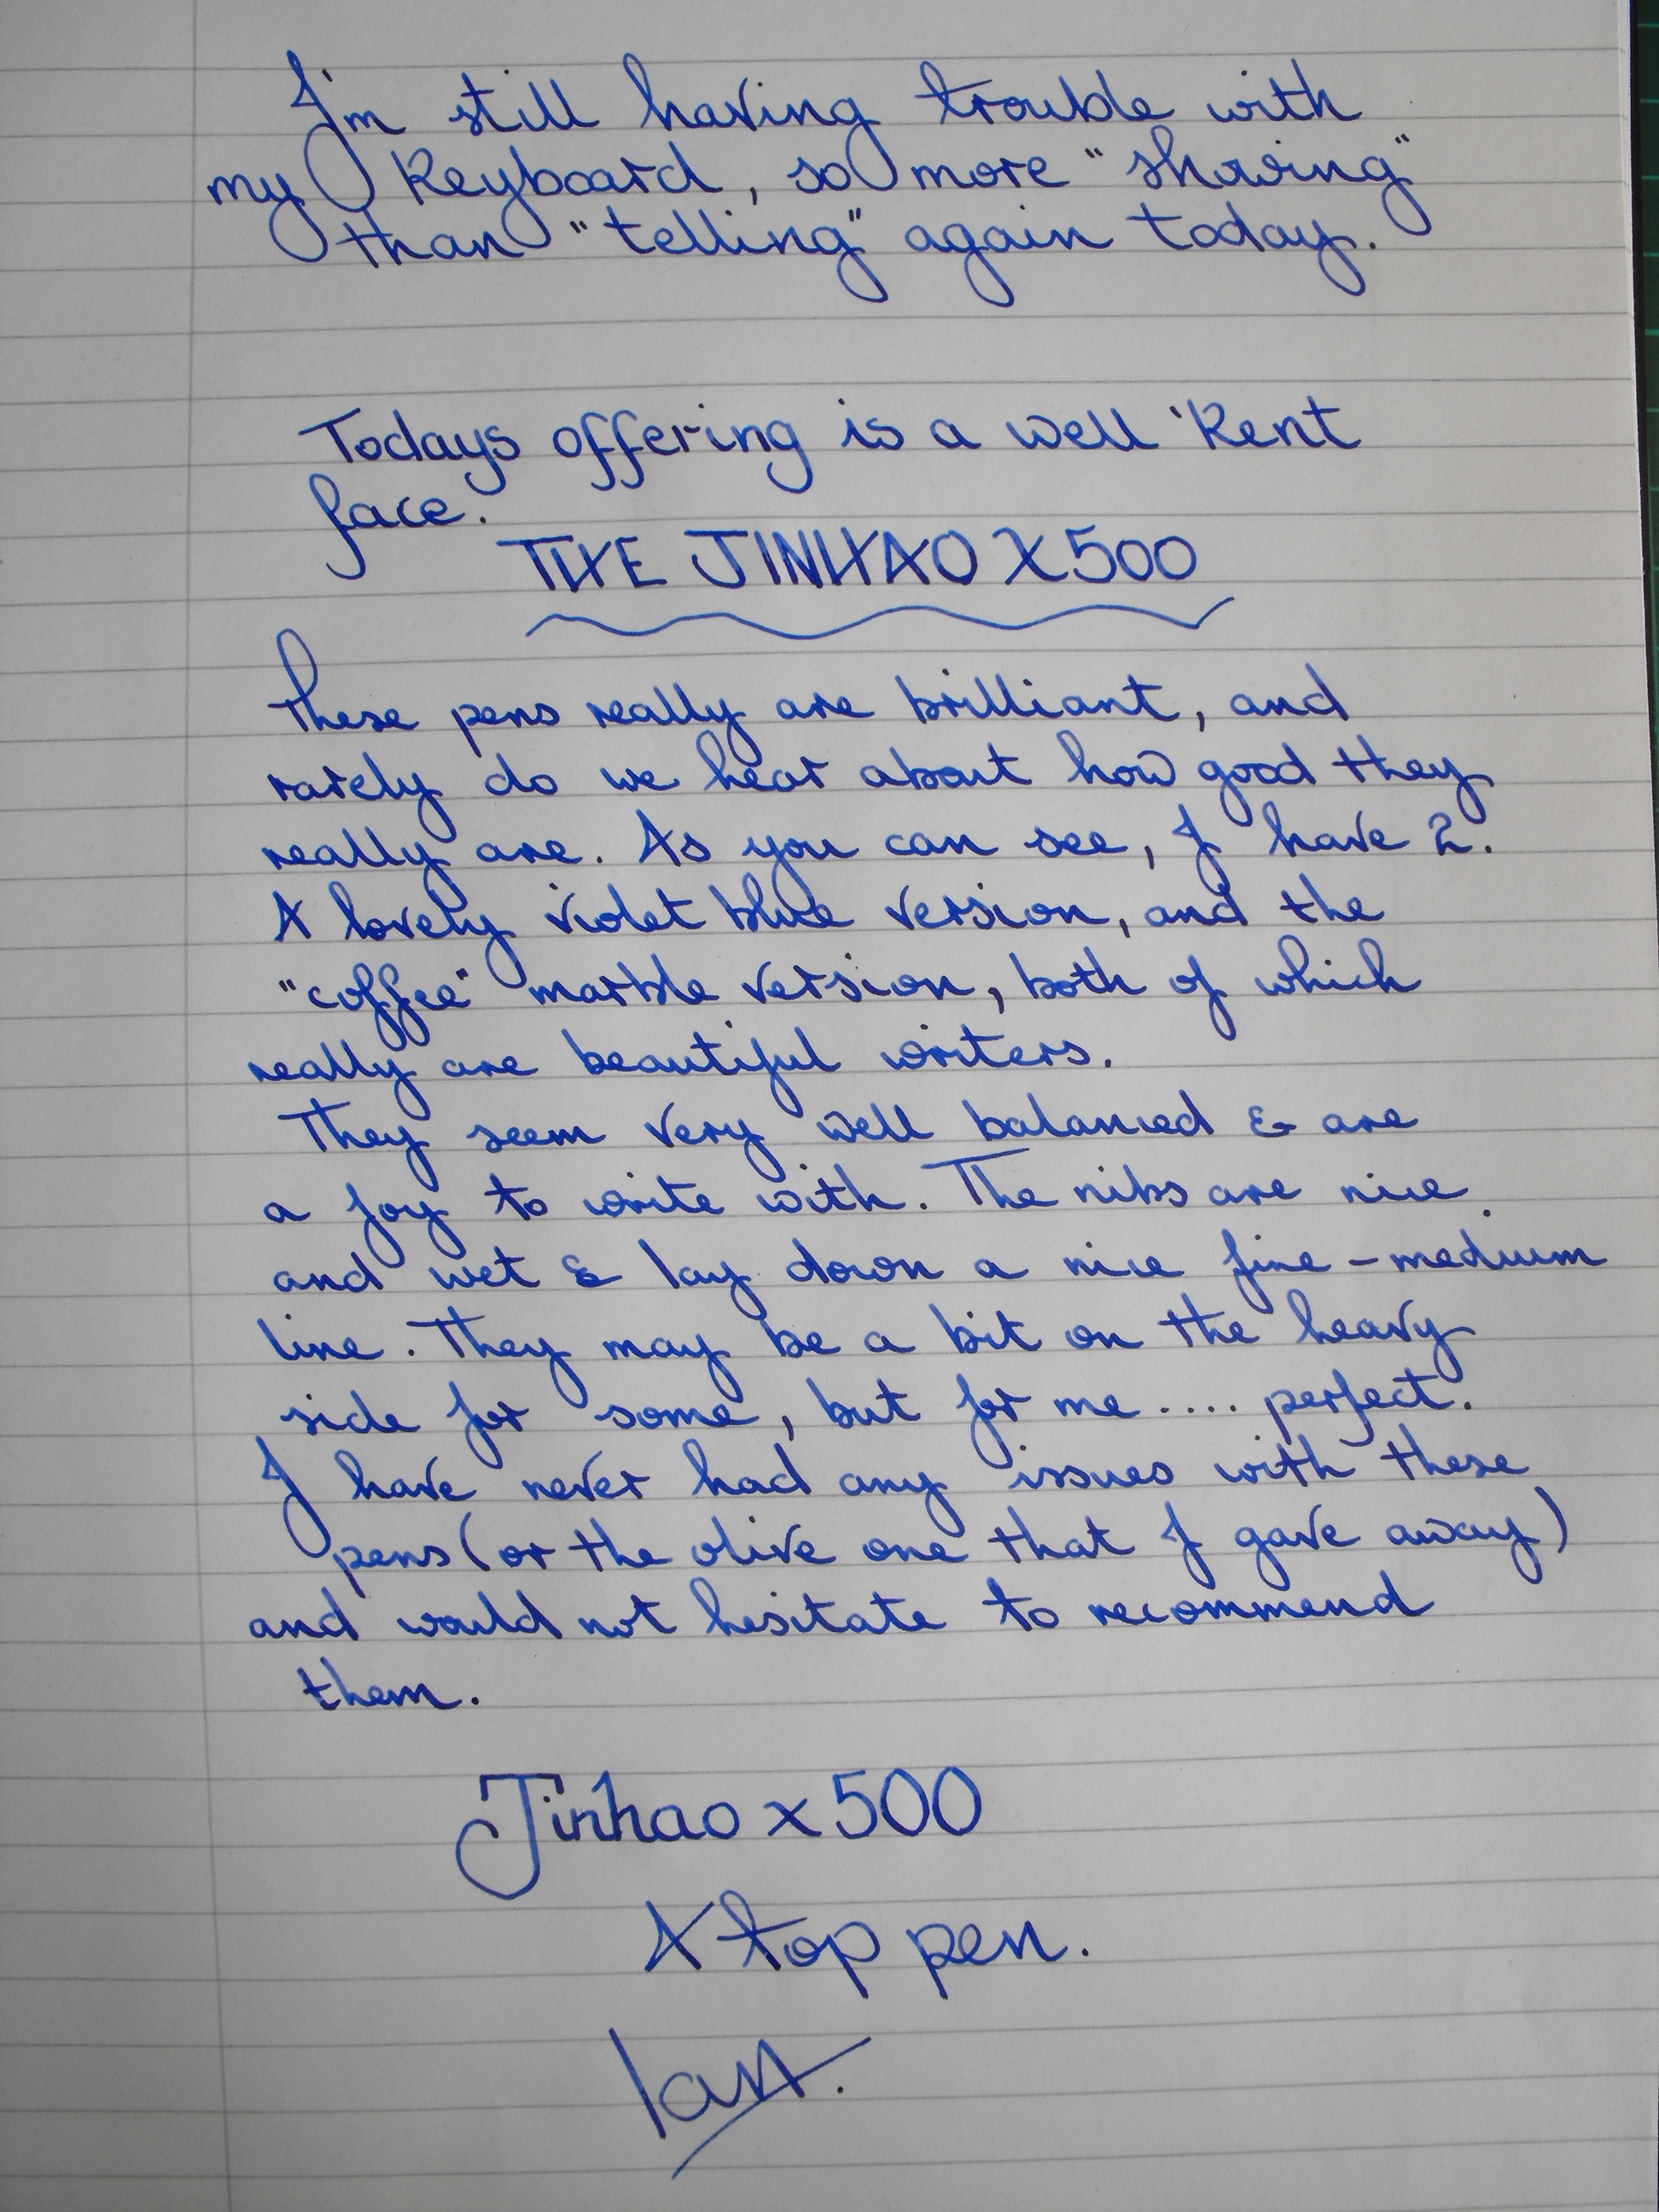 I'm still having trouble with
my keyboard, so more "showing"
than "telling" again today.
Todays offering is a well 'kent
face.
THE JINHAO X500
These pens really are brilliant, and
rarely do we hear about how good they
really are. As you can see, I have 2.
A lovely violet blue version, and the
"coffee" marble version, both of which
really are beautiful writers.
They seem very well balanced & are
a joy to write with. The nibs are nice
and wet & lay down a nice fine-medium
line. They may be a bit on the heavy
side for some, but for me.... perfect.
I have never had any issues with these
pens (or the olive one that I gave away)
and would not hesitate to recommend
them.
Jinhao x500
A top pen.
Ian.